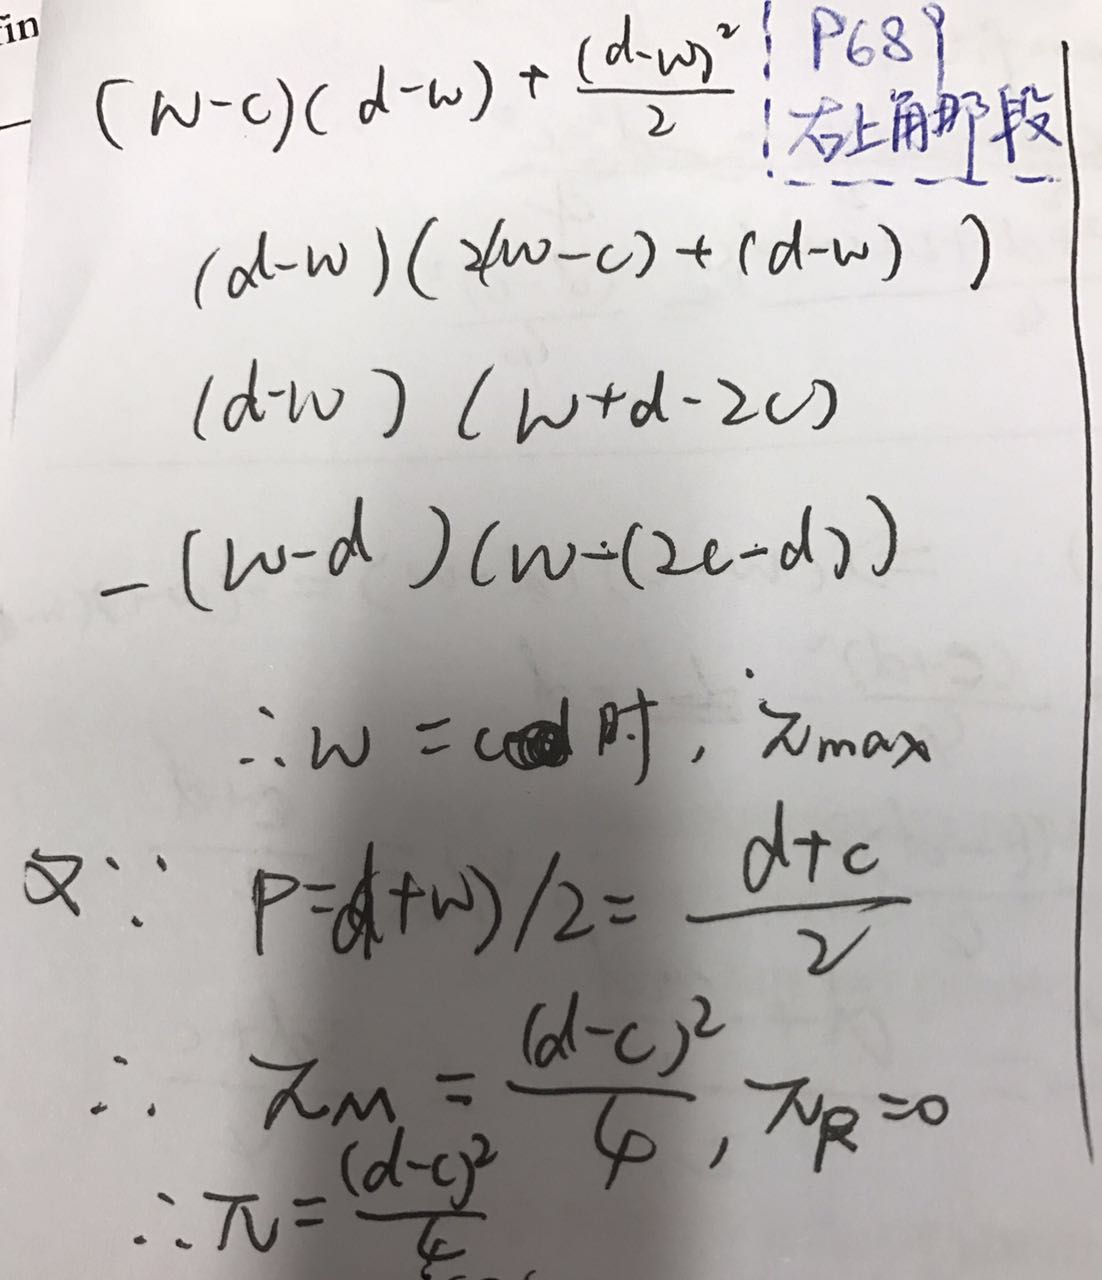 fin
(w-c)(d-w) + (d-w)²/2
P68
右上角那段
(d-w)(2(w-c)+(d-w))
(d-w)(w+d-2c)
-(w-d)(w-(2c-d))
∴w=c时, πmax
又∵ P=(d+w)/2=(d+c)/2
∴ πM=(d-c)²/4, πR=0
∴π=(d-c)²/4